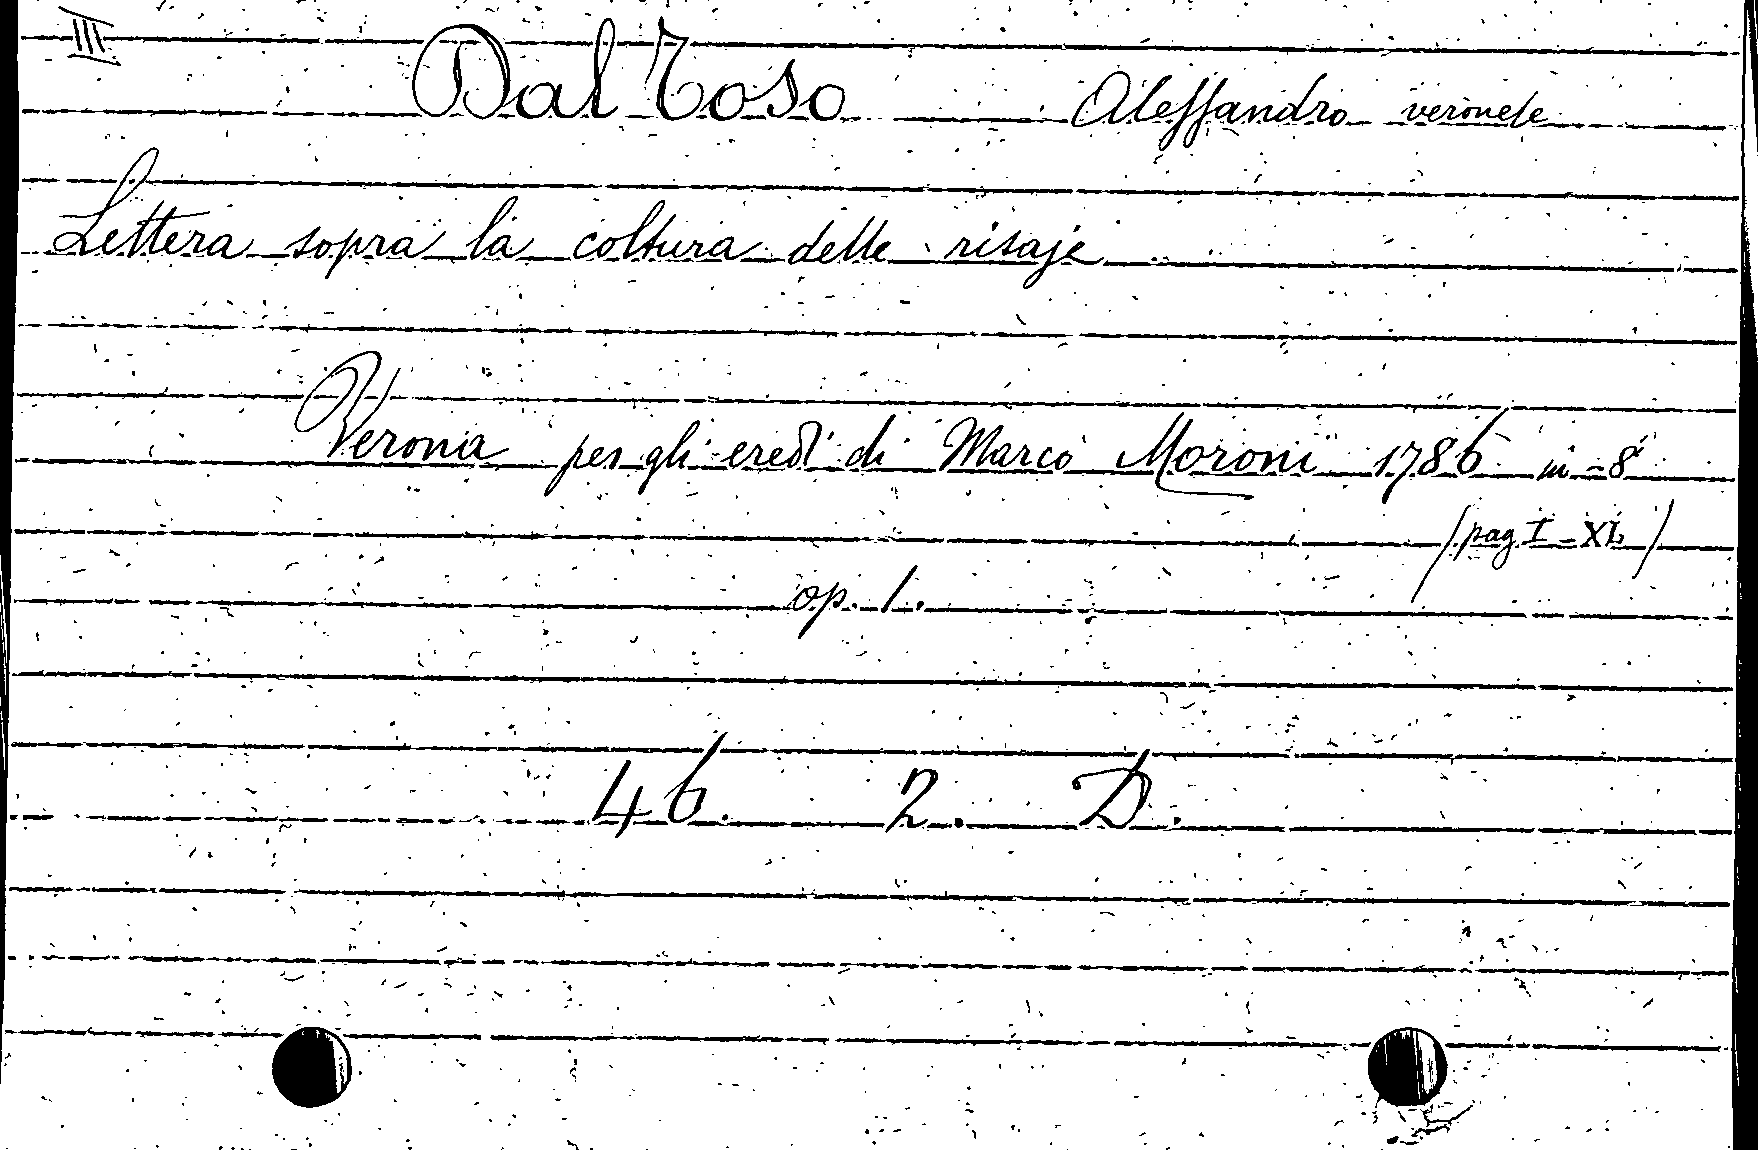 III
Dal Toso Alessandro veronese
Lettera sopra la coltura delle risaje
Verona per gli eredi di Marco Moroni 1786 in-8°
(pag I-XL)
op. 1.
46. 2. D.